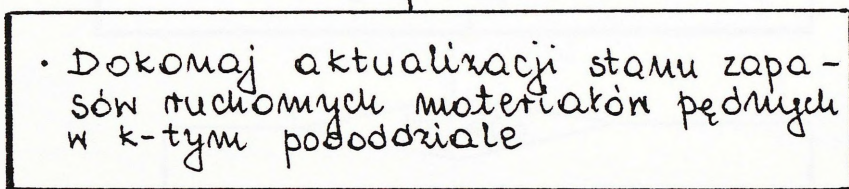 · Dokonaj aktualizacji stanu zapa-
sów ruchomych materiałów pędnych
w k-tym pododdziale